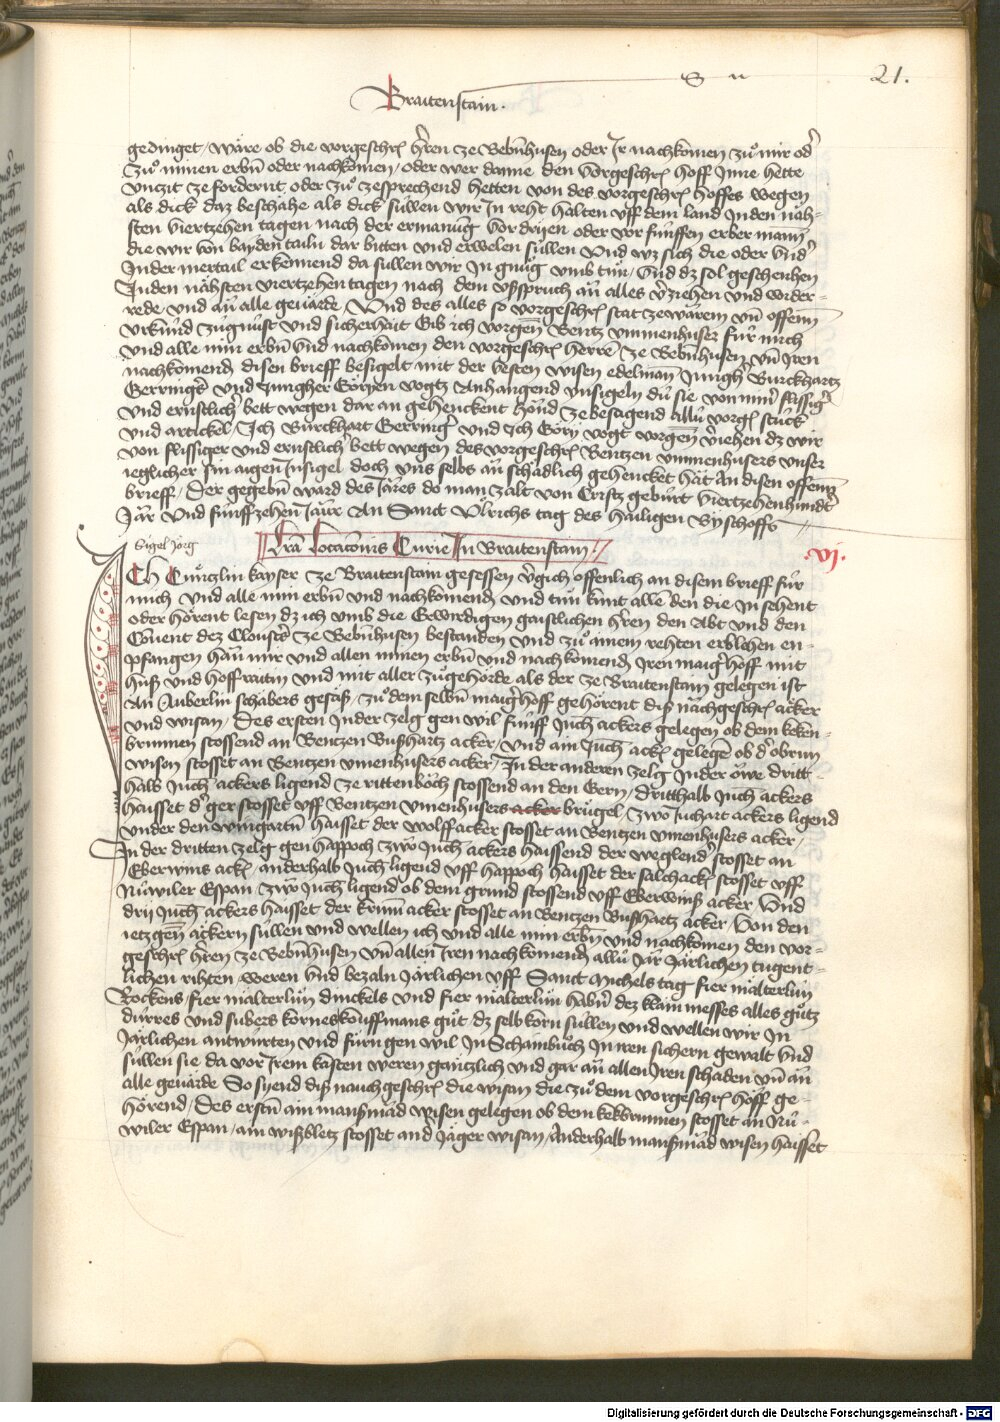 21.
Braitenstain.
gedinget / wåre ob die vorgeschrẽ h̃ren ze Bebenhusen oder Ir nachkomen zů mir od̃
zů minen erbñ oder nachkomen / oder wer danne den vorgeschrẽ hoff Inne hette
vnczit ze fordernt oder zů zesprechend hetten von des vorgeschrẽ hoffes wegen
als dick daz beschåhe als dick süllen wir In reht halten vff dem land Inden nåh-
sten viertzehen tagen nach der ermanũg vor drijen oder vor fünffen erber mann
die wir von bayden tailn dar bitten vnd erwelen süllen Vnd wz sich die oder vnd̃
Inder mertail erkennend da süllen wir In gnůg vmb tůn / vnd dz sol geschenhen
Inden nåhsten viertzehen tagen nach dem vßspruch añ alles ṽziehen vnd wider-
rede vnd añ alle geuårde / Vnd des alles so vorgeschrẽ stat ze wårem vñ offenñ
vrkünd zugnüst vnd sicherhait Gib ich vorgeñ Bentz vmmenhuser für mich
vnd alle min erbñ vnd nachkomen den vorgeschrẽ herrẽ ze Bebenhusen vñ Iren
nachkomend disen brieff besigelt mit der vesten wisen edelman Jungh̃ Burckhartz
Gerringß vnd Jungher Görijen vogtz Anhangend Insigeln dü sie von minr̃ flissigr̃
vnd ernstlichr̃ bett wegen dar an gehenckent hönd ze besagend allü vorgẽ stück
vnd artickel / Ich Burckhart Gerringr̃ vnd Ich Görij vogt vorgeñ v̄iehen dz wir
von flissiger vnd ernstlichr̃ bett wegen des vorgeschrẽ Bentzen vmmenhusers vnser
ieglicher sin aigen Insigel doch vns selbs añ schådlich gehencket håt An disen offenñ
brieff / Der gegebñ ward des Jåres do man zalt von Cristz gebürt viertzehenhundt̃
Jår vnd fünffzehen Jaür An Sanct Vlrichs tag des hailigen Byschoffs
Sigel Jörg
Lrã Locacõnis Curie In Braitenstain /
.vj.
Ich Cůntzlin kayser ze Braitenstain gesessen v̄gich offenlich an disem brieff für
mich vnd alle min erbñ vnd nachkomend vnd tůn kunt allẽ den die In sehent
oder hörent lesen dz ich vmb die Erwirdigen gaistlichen h̃ren den Abt vnd den
Cõuent dez Closters ze Bebenhusen bestanden vnd zů ainem rehten erblehen en-
pfangen hañ mir vnd allen minen erbñ vnd nachkomend Iren maigr̃hoff mit
huß vnd hoffraitin vnd mit aller zůgehörde als der ze Braitenstain gelegen ist
An Auberlin schåbers gesåß / zů dem selbñ maigr̃hoff gehörent diß nachgeschrẽ acker
vnd wisan / Des ersten Inder zelg gen wil fünff Juch ackers gelegen ob dem keken-
brunnen stossend an Bentzen Bußhartz acker / vnd ain Juch ackẽ gelegẽ ob d̃ obrun
wisen stosset an Bentzen vmenhusers acker / In der anderen zelg Inder öwe dritt-
halb Juch ackers ligend ze rittenböch stossend an den Gern / dritthalb Juch ackers
haisset d̃ ger stosset vff Bentzen vmenhusers acker brügel / zwo Juchart ackers ligend
vnder den wingartñ haisset der wolffacker stosset an Bentzen vmenhusers acker /
In der dritten zelg gen happoch zwo Juch ackers haissend der weglend̃ stosset an
Eberwins ackẽ / anderhalb Juch ligend vff happoch haisset der salchackẽ stosset vff
Nüwiler Espan / zwo Juch ligend ob dem grund stossend vff Eberwinß acker / Vnd
drij Juch ackers haisset der krum acker stosset an Bentzen Bußhartz acker / Von den
ietzgeñ åckern süllen vnd wellen ich vnd alle min erbñ vnd nachkomen den vor-
geschrẽ h̃ren ze Bebenhusen vñ allen Iren nachkomend allü Jår Jårlichen tugent-
lichen rihten weren vnd bezaln Jårlichen vff Sanct Michels tag fier malterlun
Rockens fier målterlun dinckels vnd fier målterlun habñ dez klain messes alles gůtz
dürres vnd subers kornes kouffmans gůt dz selb korn süllen vnd wellen wir In
Jårlichen antwürten vnd fürn gen wil In Schainbůch In iren sichern gewalt vnd
süllen sie da vor Irem kasten weren gåntzlich vnd gar añ allen Iren schaden vñ añ
alle geuårde So sijend diß nauchgeschrẽ die wisan die zů dem vorgeschrẽ hoff ge-
hörend / Des erstñ ain manßmåd wisen gelegen ob dem kekbrunnen stosset an Nü-
wiler Espan / ain wißbletz stosset and̃ Jåger wisan / Anderhalb manßmåd wisen haisset
Digitalisierung gefördert durch die Deutsche Forschungsgemeinschaft - DFG